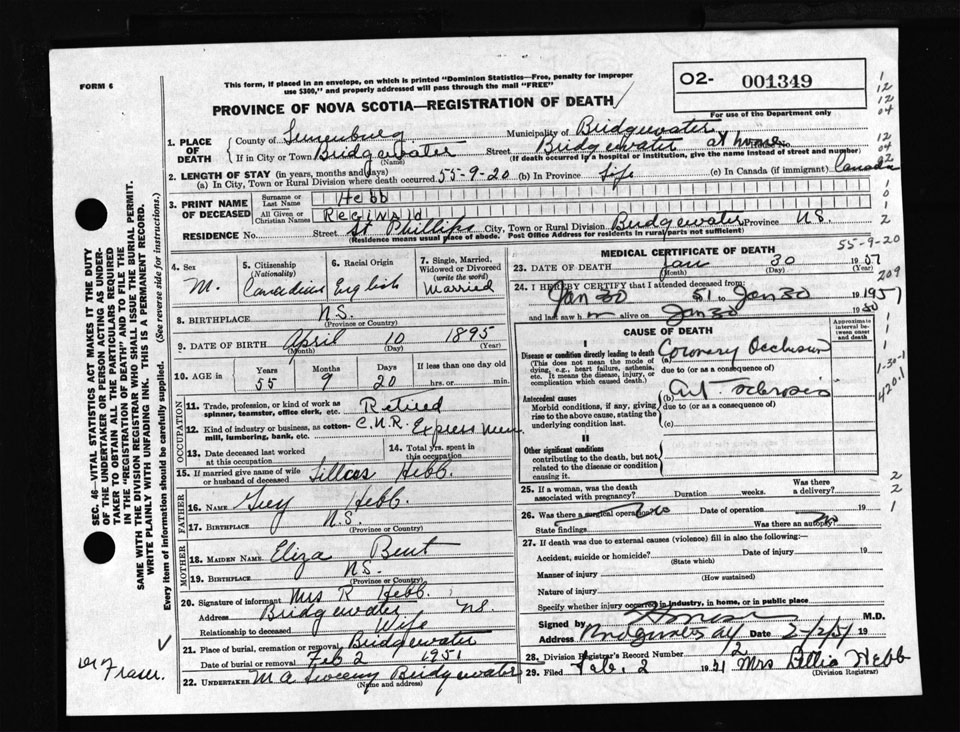 FORM 6
This form, if placed in an envelope, on which is printed "Dominion Statistics—Free, penalty for improper
use $300," and properly addressed will pass through the mail "FREE"
O2- 001349
For use of the Department only
PROVINCE OF NOVA SCOTIA—REGISTRATION OF DEATH
1. PLACE OF DEATH
County of Lunenburg Municipality of Bridgewater
If in City or Town Bridgewater Street Bridgewater at home
(Name) (If death occurred in a hospital or institution, give the name instead of street and number)
2. LENGTH OF STAY (in years, months and days)
(a) In City, Town or Rural Division where death occurred 55-9-20 (b) In Province Life (c) In Canada (if immigrant) Canada
3. PRINT NAME OF DECEASED
Surname or Last Name Hebb
All Given or Christian Names Reginald
RESIDENCE No. Street St Phillips City, Town or Rural Division Bridgewater Province N.S.
(Residence means usual place of abode. Post Office Address for residents in rural parts not sufficient)
4. Sex M.
5. Citizenship (Nationality) Canadian
6. Racial Origin English
7. Single, Married, Widowed or Divorced (write the word) Married
8. BIRTHPLACE N.S.
(Province or Country)
9. DATE OF BIRTH April 10 1895
(Month) (Day) (Year)
10. AGE in Years 55 Months 9 Days 20 If less than one day old
hrs. or min.
OCCUPATION
11. Trade, profession, or kind of work as
spinner, teamster, office clerk, etc. Retired
12. Kind of industry or business, as cotton-
mill, lumbering, bank, etc. C.N.R. Express
13. Date deceased last worked
at this occupation
14. Total yrs. spent in
this occupation
15. If married give name of wife
or husband of deceased Hebb.
FATHER
16. NAME Guy Hebb.
17. BIRTHPLACE N.S.
(Province or Country)
MOTHER
18. MAIDEN NAME Eliza Bent
19. BIRTHPLACE N.S.
(Province or Country)
20. Signature of informant Mrs R Hebb.
Address Bridgewater N.S.
Relationship to deceased Wife
21. Place of burial, cremation or removal Bridgewater
Date of burial or removal Feb 2 1951
22. UNDERTAKER M A Sweeny Bridgewater
(Name and address)
MEDICAL CERTIFICATE OF DEATH
55-9-20
23. DATE OF DEATH Jan 30 1951
(Month) (Day)
24. I HEREBY CERTIFY that I attended deceased from:
Jan 30 51 to Jan 30 1951
and last saw h m alive on Jan 30 19
CAUSE OF DEATH
Approximate interval between onset and death
I
Disease or condition directly leading to death (a) Coronary Occlusion
(This does not mean the mode of
dying, e.g., heart failure, asthenia,
etc. It means the disease, injury, or
complication which caused death.)
due to (or as a consequence of)
Antecedent causes (b) Art sclerosis
Morbid conditions, if any, giving
rise to the above cause, stating the
underlying condition last.
due to (or as a consequence of)
(c)
II
Other significant conditions
contributing to the death, but not
related to the disease or condition
causing it.
25. If a woman, was the death
associated with pregnancy? Duration weeks. Was there
a delivery?
26. Was there a surgical operation? No Date of operation 19
State findings Was there an autopsy? No
27. If death was due to external causes (violence) fill in also the following:—
Accident, suicide or homicide? Date of injury 19
(State which)
Manner of injury
(How sustained)
Nature of injury
Specify whether injury occurred in industry, in home, or in public place
Signed by M.D.
Address Bridgewater Date 2/2/51 19
28. Division Registrar's Record Number 12
29. Filed Feb. 2 1951 Mrs Hebb
(Division Registrar)
SEC. 46—VITAL STATISTICS ACT MAKES IT THE DUTY
OF THE UNDERTAKER OR PERSON ACTING AS UNDER-
TAKER TO OBTAIN ALL THE PARTICULARS REQUIRED
IN THE "REGISTRATION OF DEATH" AND TO FILE THE
SAME WITH THE DIVISION REGISTRAR WHO SHALL ISSUE THE BURIAL PERMIT.
WRITE PLAINLY WITH UNFADING INK. THIS IS A PERMANENT RECORD.
Every item of information should be carefully supplied. (See reverse side for instructions.)
Fraser.
1
12
12
04
12
04
02
1
0
1
2
209
1
1
1
1-30-1
420.1
2
2
1